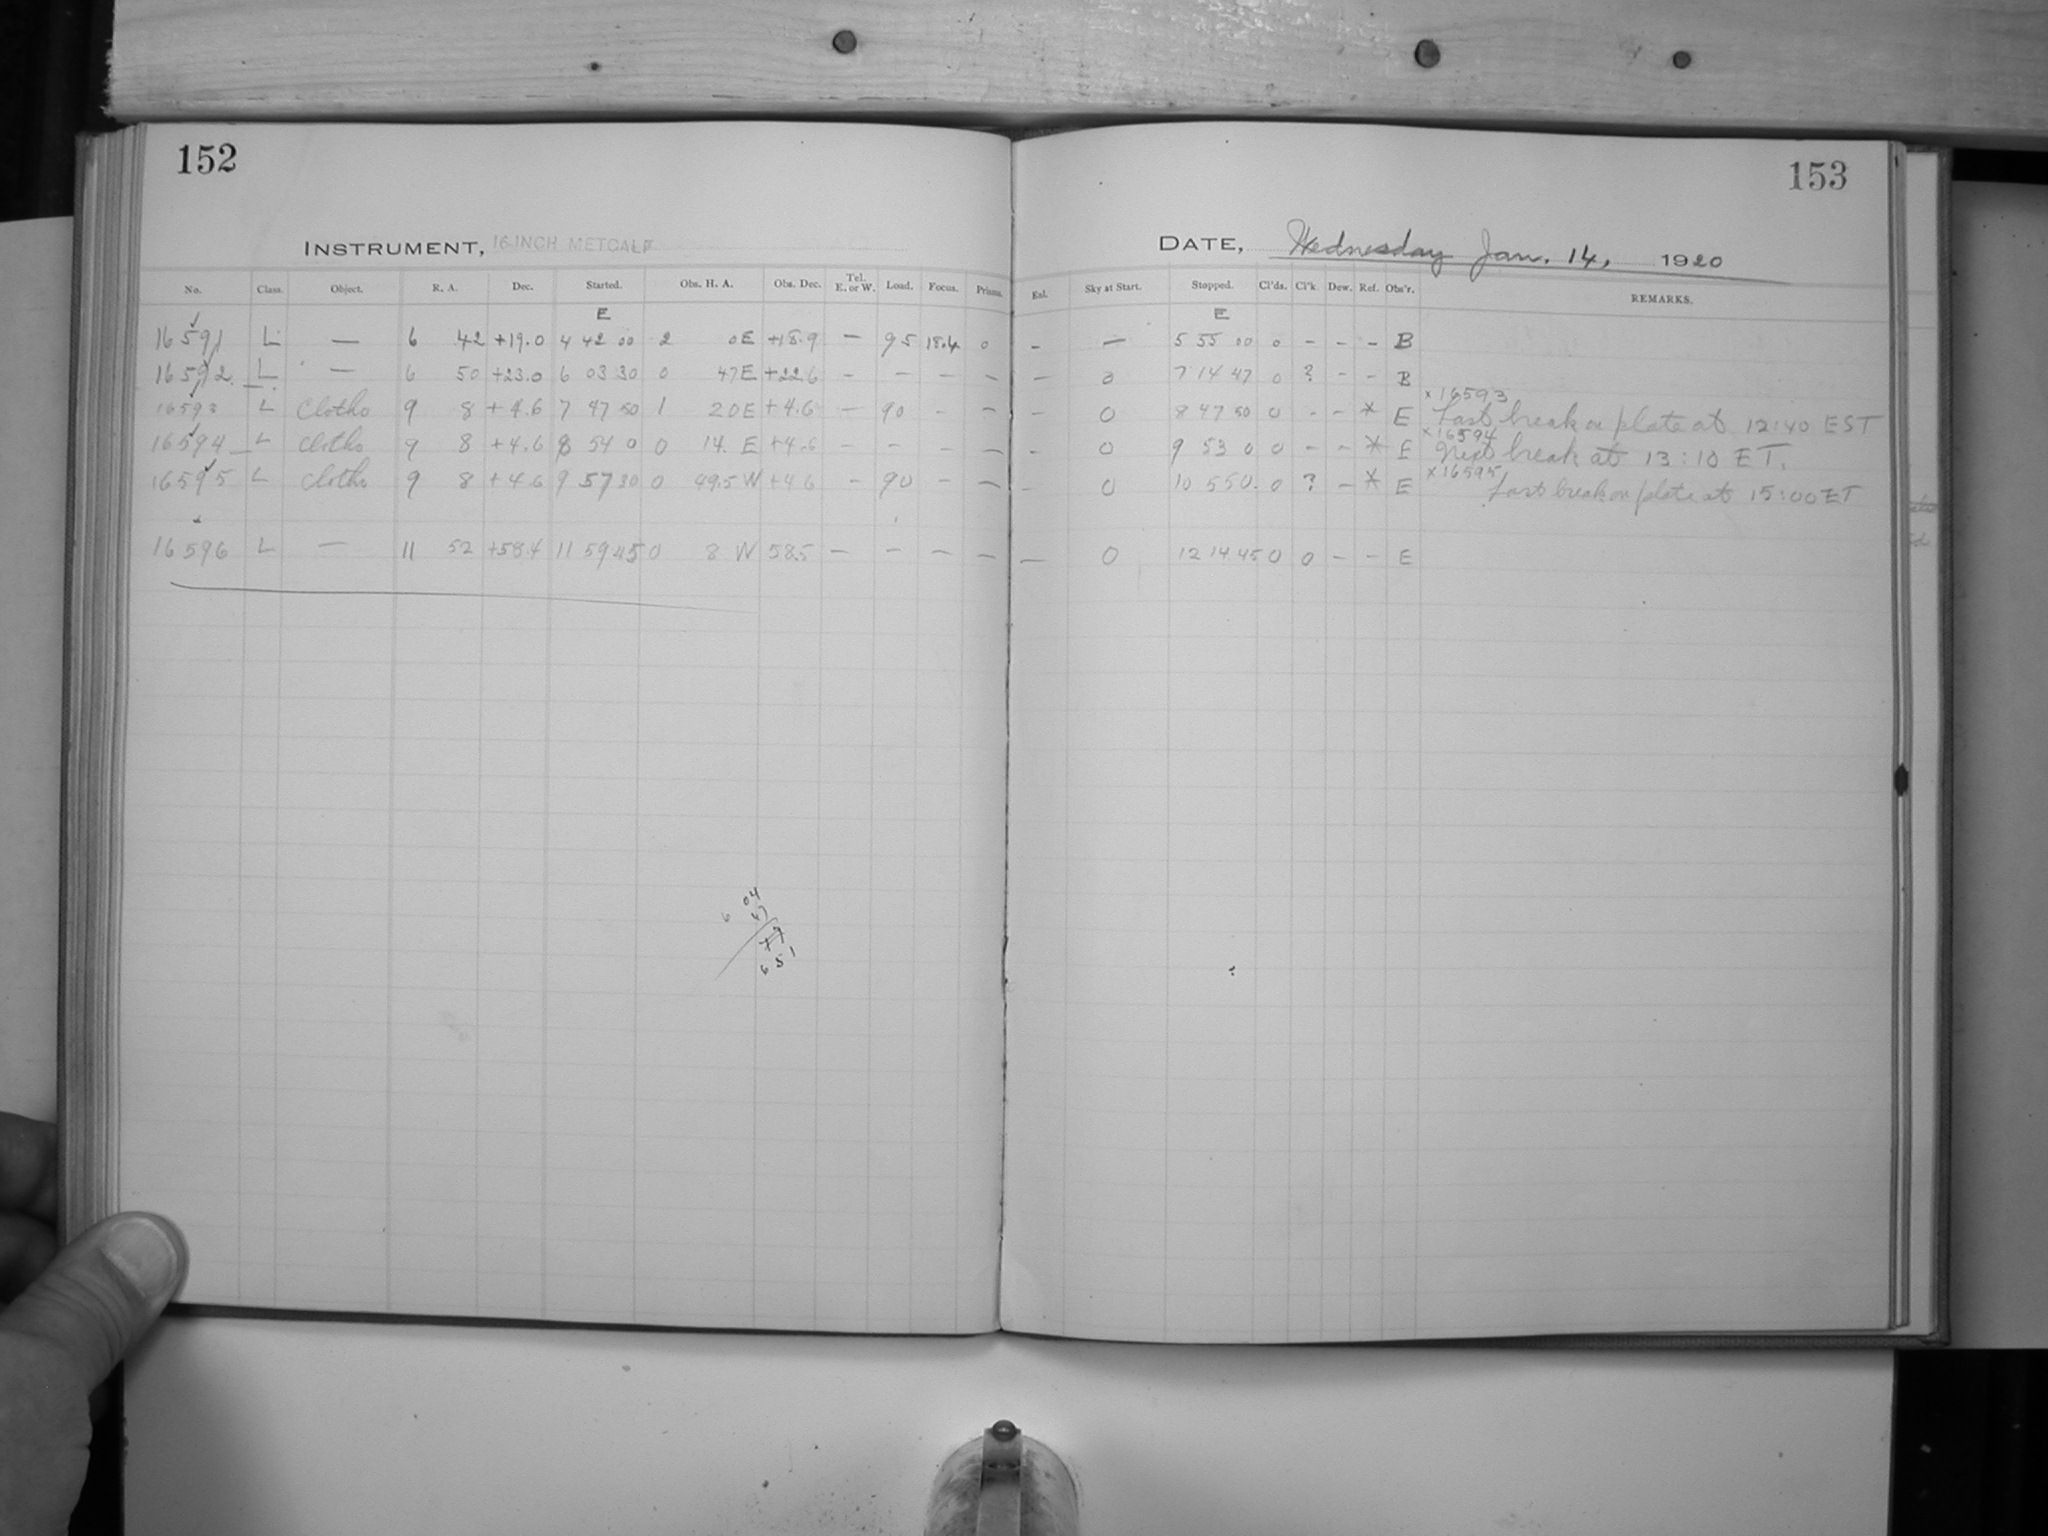 152
153
INSTRUMENT, 16 INCH METCALF
DATE, Wednesday Jan. 14, 1920
No. Class. Object. R. A. Dec. Started. Obs. H. A. Obs. Dec. Tel. E. or W. Load. Focus. Prisms. Enl. Sky at Start. Stopped. Cl'ds. Cl'k. Dew. Ref. Obs'r. REMARKS.
E E
16591 L — 6 42 +19.0 4 42 00 2 0E +18.9 — 95 18.4 0 - — 5 55 00 0 - - - B
16592 L — 6 50 +23.0 6 03 30 0 47E +22.6 - - - — — 0 7 14 47 0 ? - - B
16593 L Clotho 9 8 +4.6 7 47 50 1 20E +4.6 — 90 - — - 0 8 47 50 0 - - * E × 16593 Last break on plate at 12:40 EST
16594 L Clotho 9 8 +4.6 8 54 0 0 14. E +4.6 - - - — 0 9 53 0 0 - - * E × 16594 Next break at 13:10 ET.
16595 L Clotho 9 8 +4.6 9 57 30 0 49.5 W +4.6 - 90 - — - 0 10 55 0. 0 ? - * E × 16595 Last break on plate at 15:00 ET
16596 L — 11 52 +58.4 11 59 45 0 8 W 58.5 — — — — — 0 12 14 45 0 0 - - E
6 04
47
77
6 51